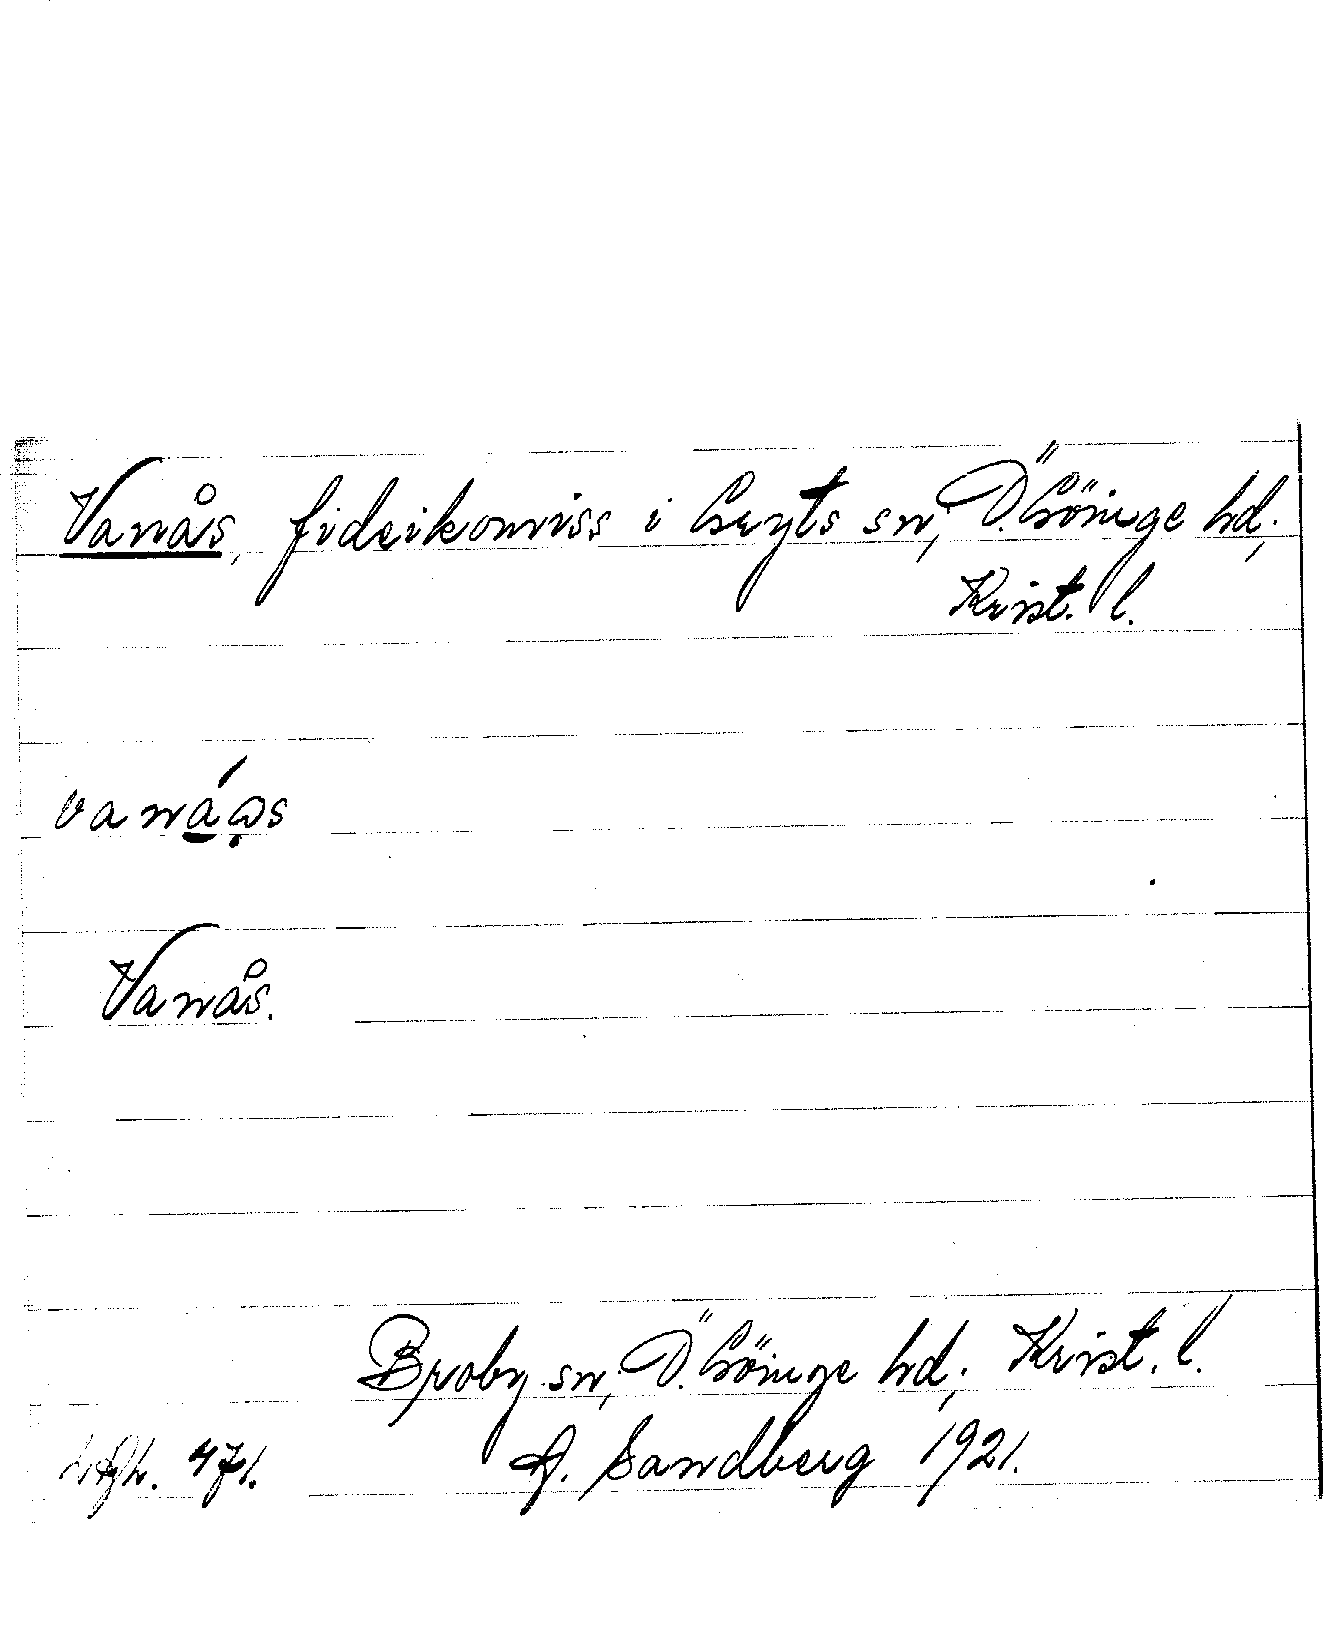 Vanås, fideikomiss i Gryts sn, Ö. Göinge hd,
Krist. l.
vanáɷs
Vanås.
Broby sn, Ö. Göinge hd, Krist. l.
471. A. Sandberg 1921.